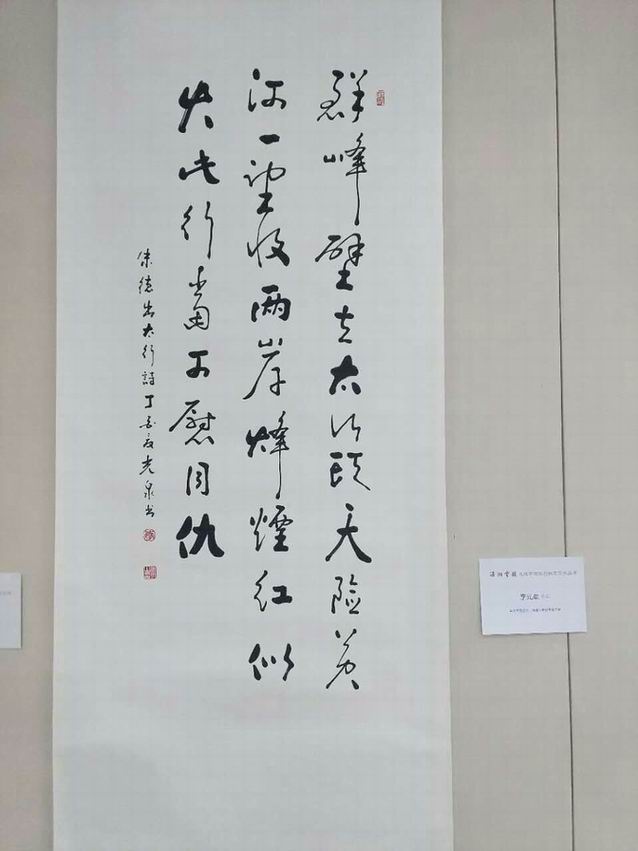 群峰壁立太行頭天险黄
河一望收兩岸烽煙红似
火此行當可慰同仇
朱德出太行詩丁酉夏光泉書